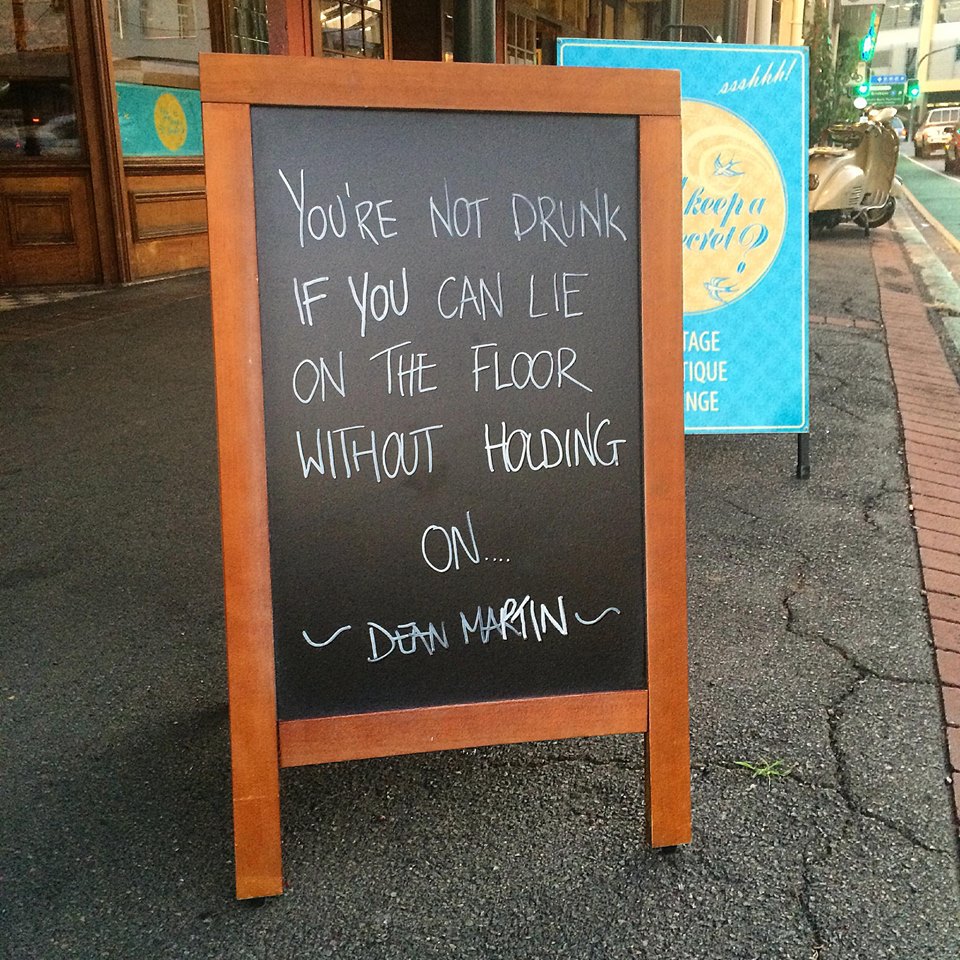 YOU'RE NOT DRUNK
IF YOU CAN LIE
ON THE FLOOR
WITHOUT HOLDING
ON....
~ DEAN MARTIN ~
ssshhh!
keep a
ecret?
TAGE
TIQUE
NGE